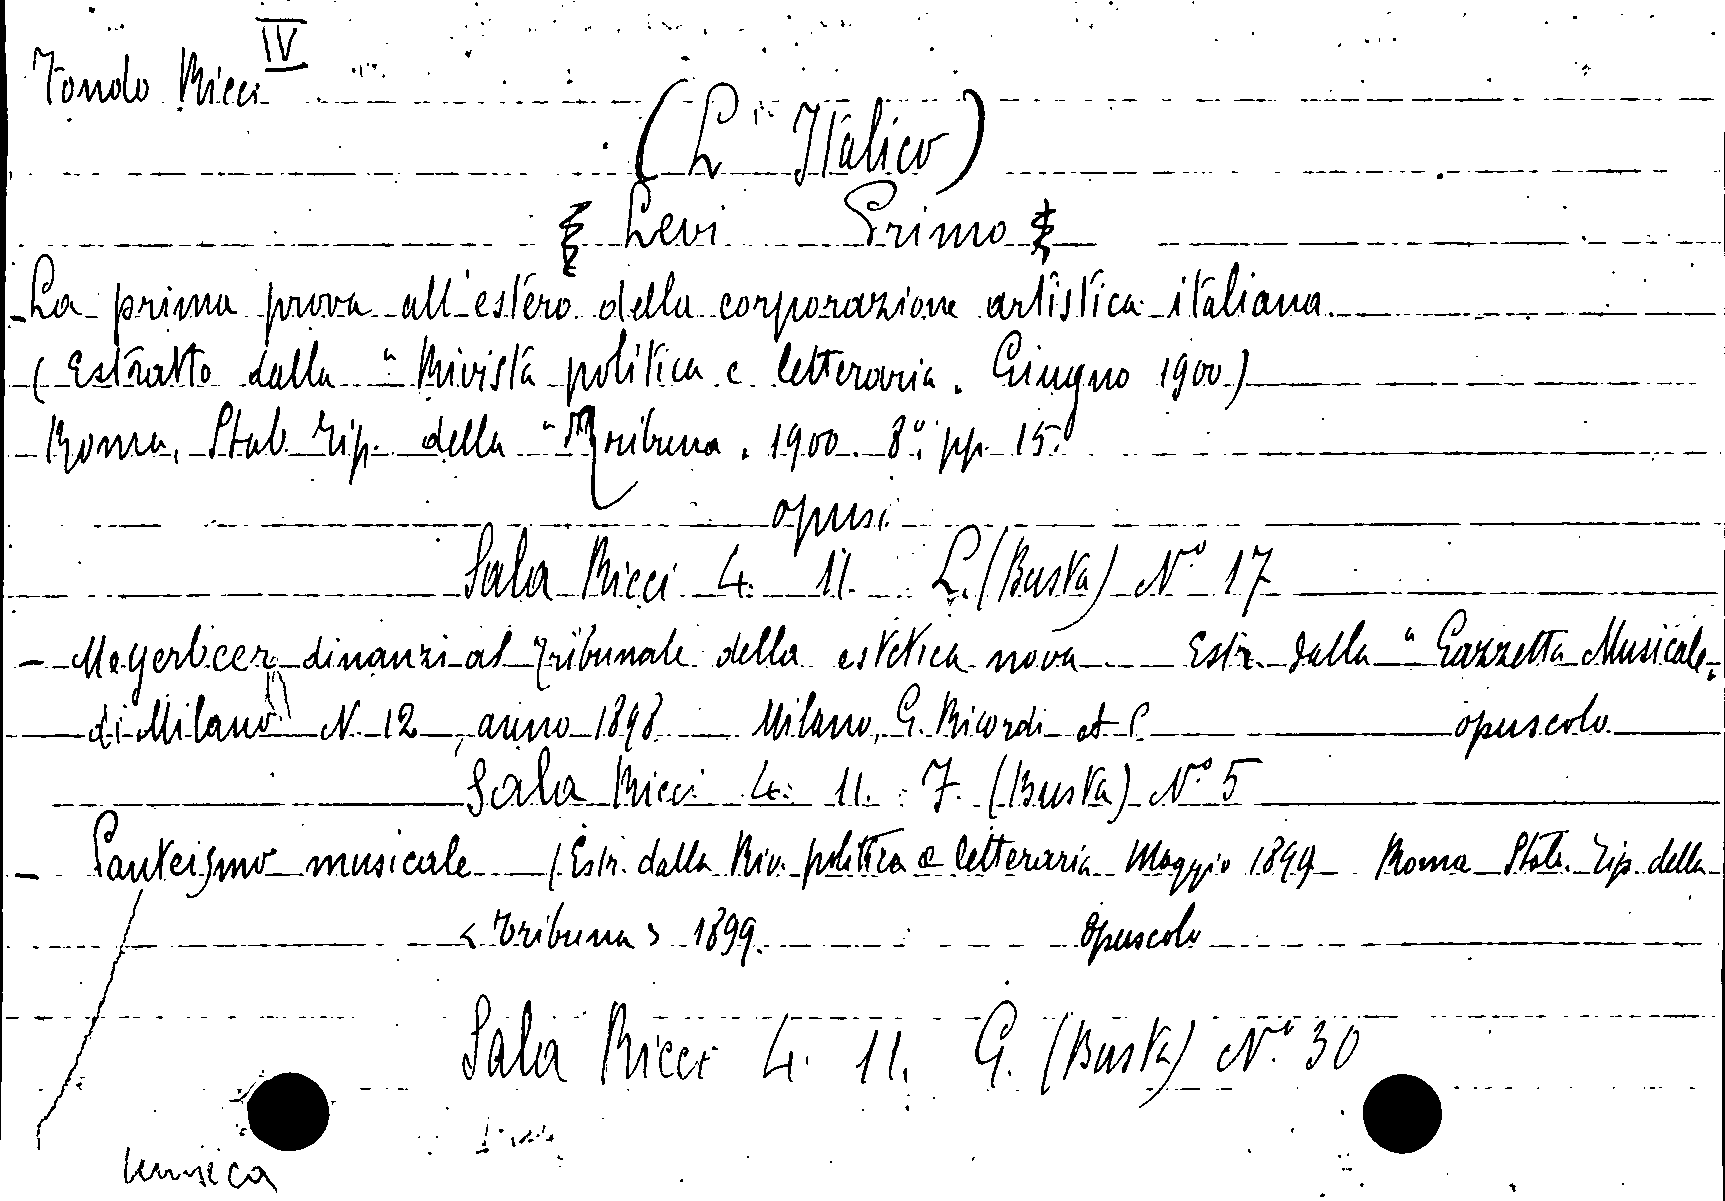 IV
Fondo Ricci
(L' Italico)
Levi Primo
La prima prova all'estero della corporazione artistica italiana
(Estratto dalla "Rivista politica e letteraria. Giugno 1900)
Roma, Stab. Tip. della "Tribuna. 1900. 8°. pp. 15.
opusc.
Sala Ricci 4. 11. L. (Busta) N° 17
- Meyerbeer dinanzi al Tribunale della estetica nova Estr. dalla "Gazzetta Musicale"
di Milano N. 12, anno 1898 Milano, G. Ricordi et C. opuscolo
Sala Ricci 4. 11. F. (Busta) N° 5
- Panteismo musicale (Estr. dalla Riv. politica e letteraria Maggio 1899 Roma Stab. Tip. della
<Tribuna> 1899. opuscolo
Sala Ricci 4. 11. G. (Busta) N° 30
musica